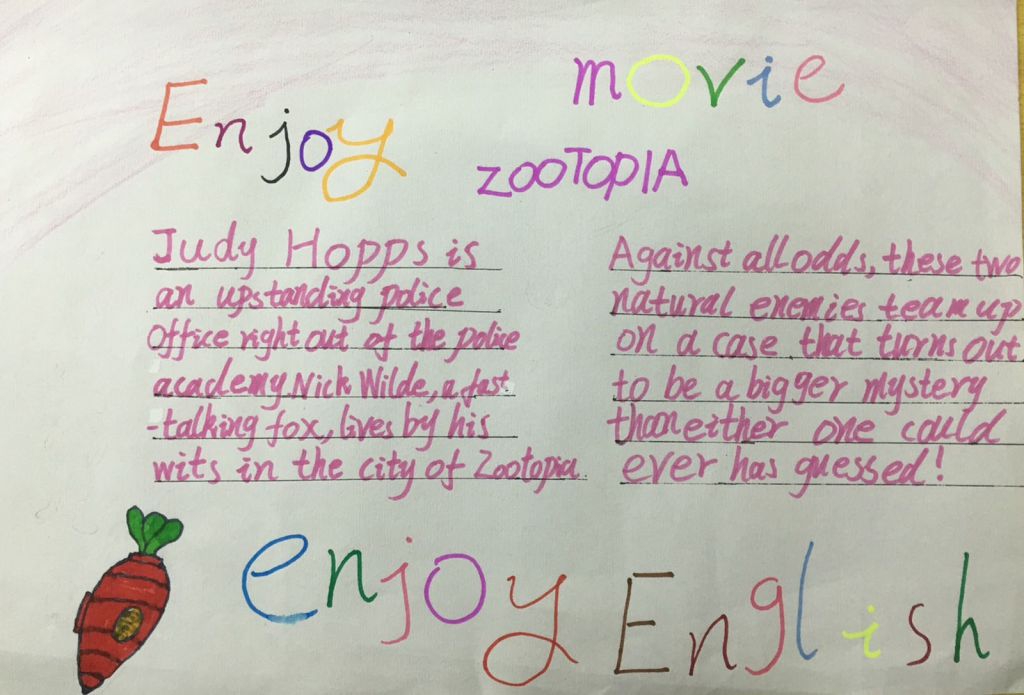 Enjoy movie
ZOOTOPIA
Judy Hopps is
an upstanding police
Office right out of the police
academy. Nick Wilde, a fast
-talking fox, lives by his
wits in the city of Zootopia.
Against all odds, these two
natural enemies team up
on a case that turns out
to be a bigger mystery
than either one could
ever has guessed!
enjoy English